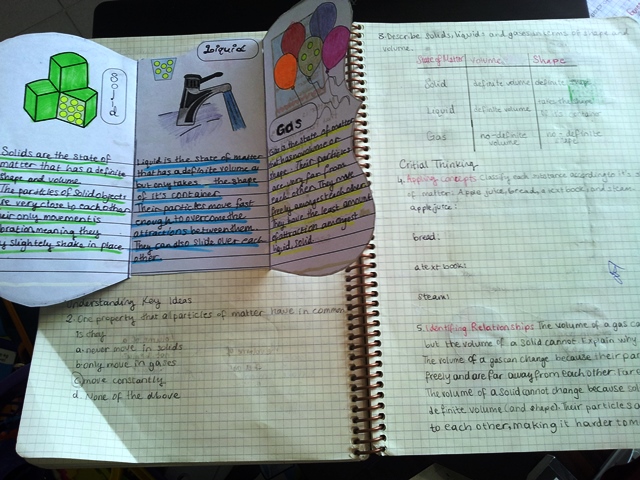 Solid
Solids are the state of
matter that has a definite
shape and volume.
The particles of Solid object
are very close to each other
their only movement is
vibration meaning they
slightly shake in place
Liquid
Liquid is the state of matter
that has a definite volume
but only takes the shape
of it's container.
Their particles move fast
enough to overcome the
attractions between them.
They can also slide over each
other.
Gas
Gas is the state of matter
that has no volume or
shape. Their particles
are very far from
each other. They move
freely
They have the least amount
of attraction amongst
solid.
Understanding Key Ideas
2. One property that all particles of matter have in common
is they
a. never move in solids
b. only move in gases
c. move constantly.
d. None of the above
3. Describe solids, liquids and gases in terms of shape and
volume.
State of Matter volume Shape
Solid definite volume definite shape
Liquid definite volume takes the shape
of its container
Gas no definite volume no definite shape
Critical Thinking
4. Applying concepts Classify each substance according to it's s
of matter: Apple juice, bread, a text book and steam.
apple juice:
bread:
a text book:
steam:
5. Identifying Relationships The volume of a gas c
but the volume of a solid cannot. Explain why.
The volume of a gas can change because their par
freely and are far away from each other.
The volume of a solid cannot change because sol
definite volume (and shape). Their particles a
to each other, making it harder to m